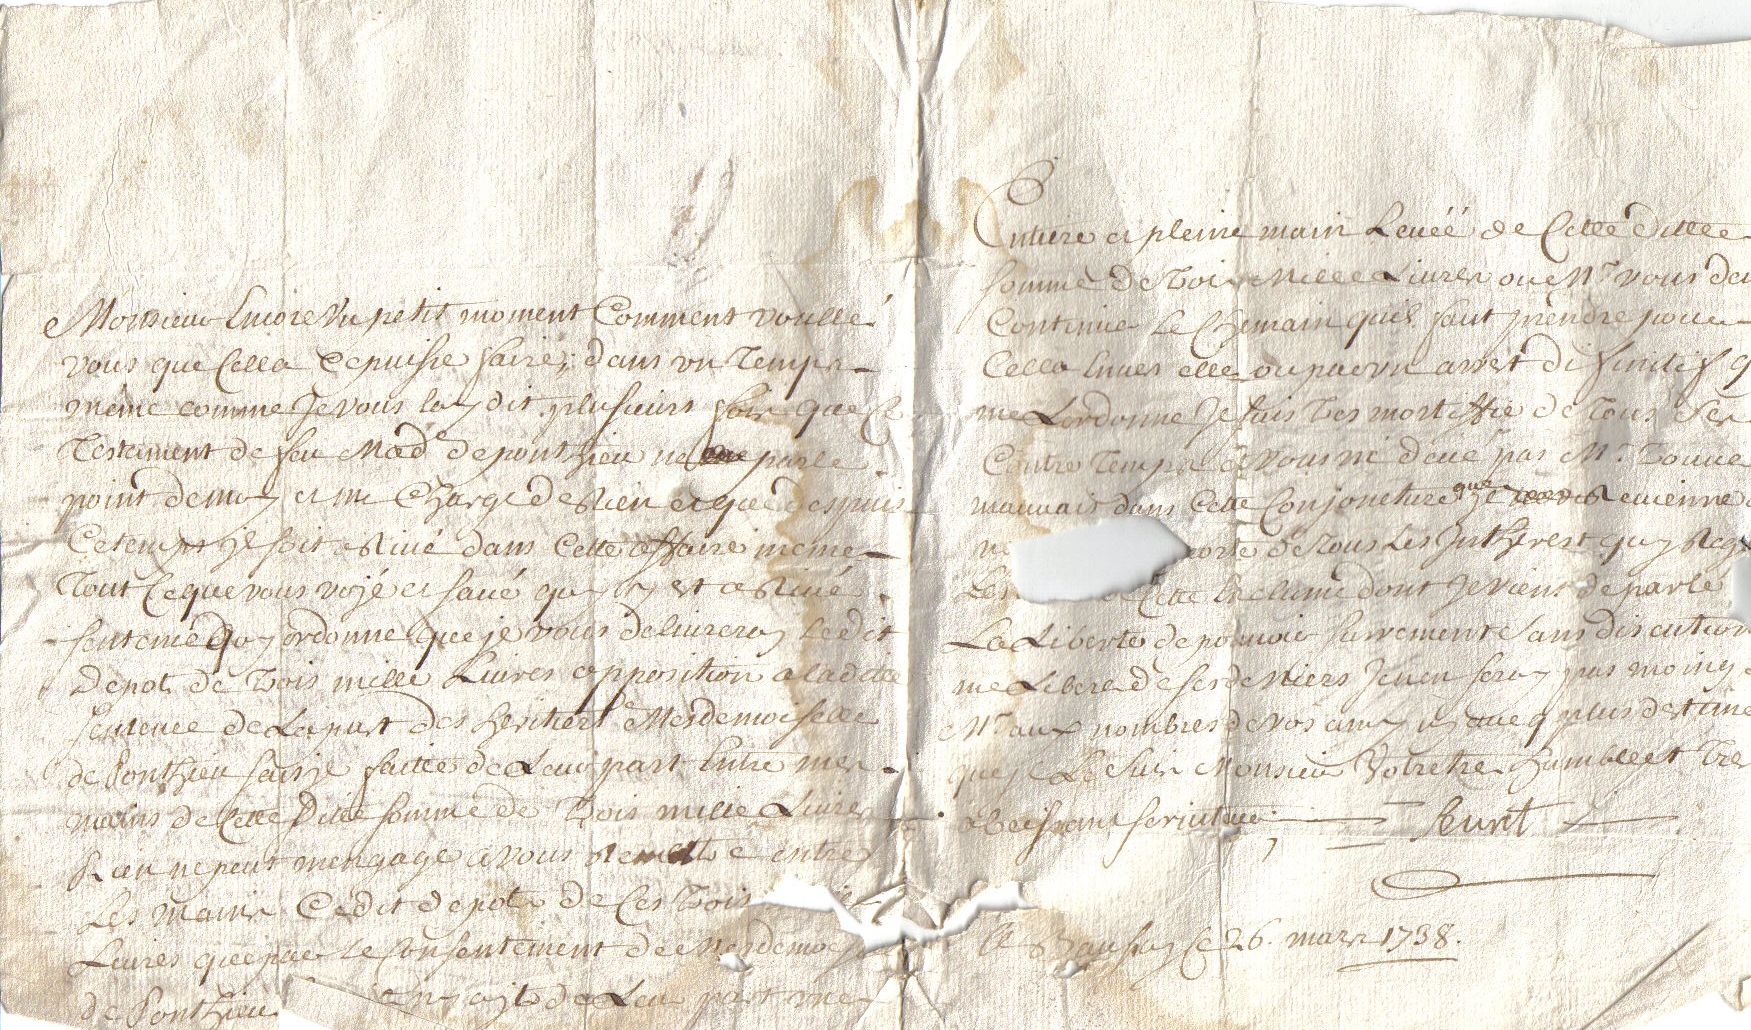 Monsieur Encore Un petit moment Comment voullé
vous que Cella Ce puisse faire; dans un Temps
méme comme Je vous lay dit plusieurs fois que le
Testament de feu Mad.e de ponthieu ne parle
point de moy et me Charge de Rien et que despuis
Ce temps il soit arivé dans Cette affaire meme
Tout Ce que vous voyé et savé quy ly est arivé
sentence quy ordonne que je vous delivreray ledit
Depot de Trois mille Livres opposition a laditte
sentence de La part des heritiers Mesdemoiselle
de Ponthieu saisye faitte de Leur part Entre mes
mains de Cette Ditte somme de Trois mille Livres
Rien ne peut mengage a vous Remettre entre
Les mains Cedit depot de Ces Trois
Livres que par le Consentement de Mesdemoise
de Ponthieu de Leur part une
Entiere et pleine main Levéé de Cette ditte
somme de Trois Mille Livres ou Mr vous devé
Continuer le Chemain quil faut prendre pour
Cella Envers elle ou par un arret difinitif q
me Lordonne Je suis Tres mortiffié de Tous Ses
Contre Temps a vous né devé pas Mr. Trouver
mauvais dans Cette Conjoncture que Je Revienne
de Tous Les Inthérest quy
Les Cette dont Je viens de parlé
La Liberté de pouvoir surement Sans discution
me Liberer de ses deniers Jenen seray pas moings
Mr. aux nombres de vos amy plus destime
que je Le suis Monsieur Votre tres humble et Tre
obeissant serviteur
A ce 26. mars 1738.